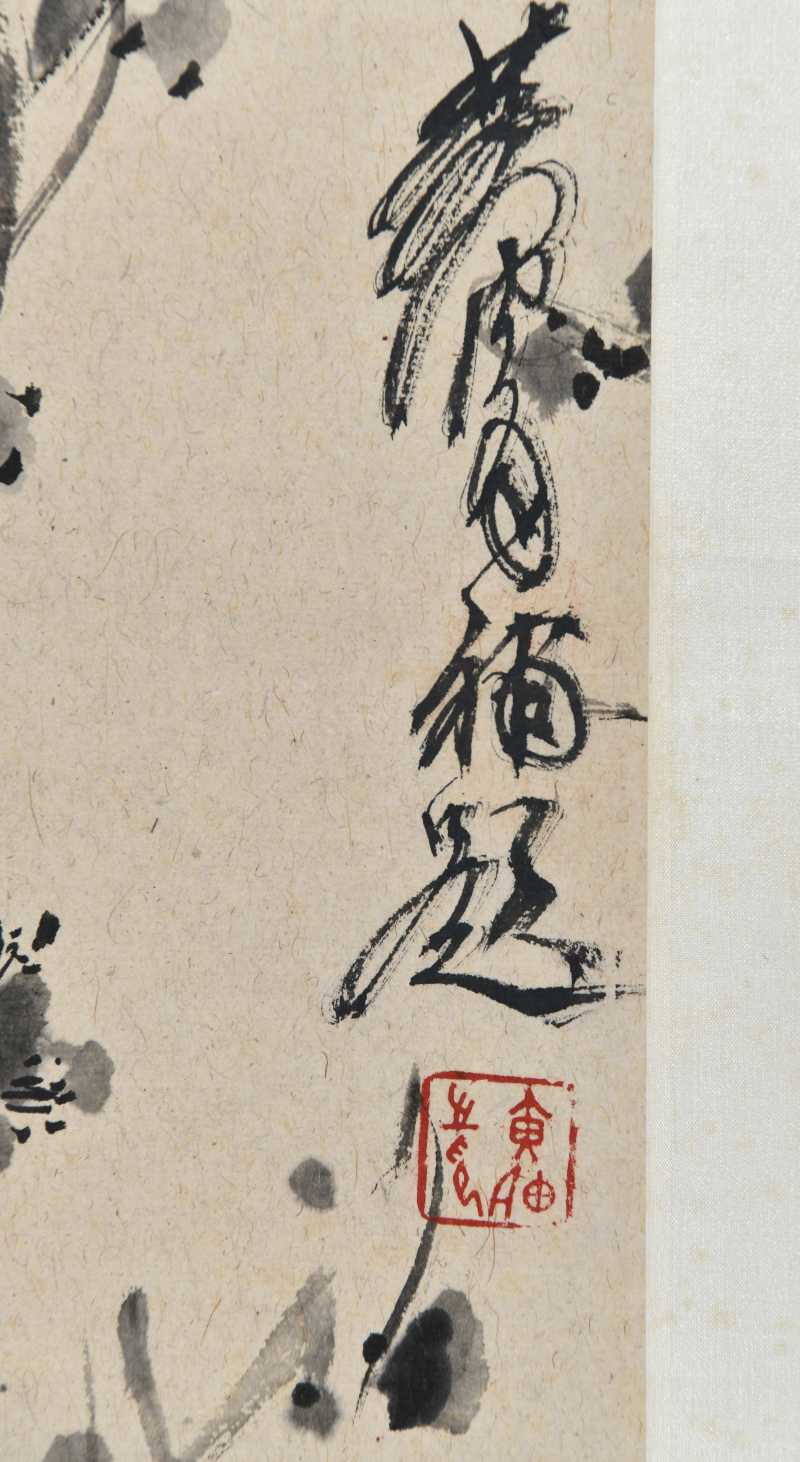 黄胄補題
黄胄